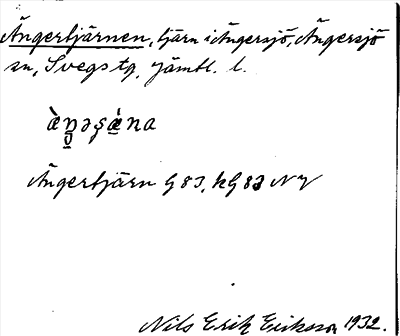 Ängertjärnen, tjärn i Ängersjö, Ängersjö
sn, Svegs tg, Jämtl. l.
Ängertjärn G 83, hG 83 NV
Nils Erik Eriksson 1932.